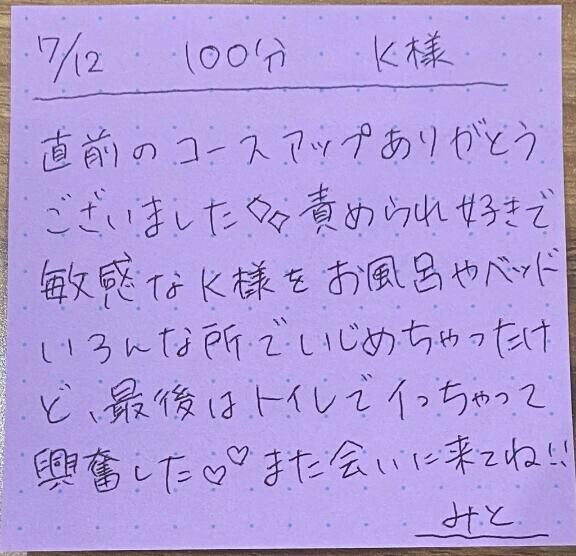 7/12 100分 K様
直前のコースアップありがとう
ございました◇◇責められ好きで
敏感なK様をお風呂やベッド
いろんな所でいじめちゃったけ
ど、最後はトイレでイっちゃって
興奮した♡♡また会いに来てね!!
みと